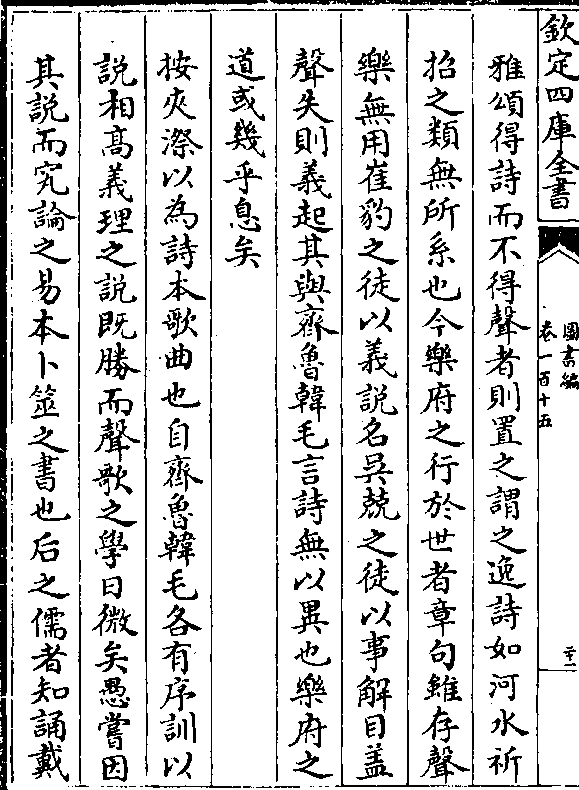 欽定四庫全書
圖書編
卷一百十五
雅頌得詩而不得聲者則置之謂之逸詩如河水祈
招之類無所系也今樂府之行於世者章句雖存聲
樂無用崔豹之徒以義說名吳兢之徒以事解目蓋
聲失則義起其與齊魯韓毛言詩無以異也樂府之
道或幾乎息矣
按夾漈以為詩本歌曲也自齊魯韓毛各有序訓以
說相髙義理之說既勝而聲歌之學日微矣愚嘗因
其說而究論之易本卜筮之書也后之儒者知誦戴